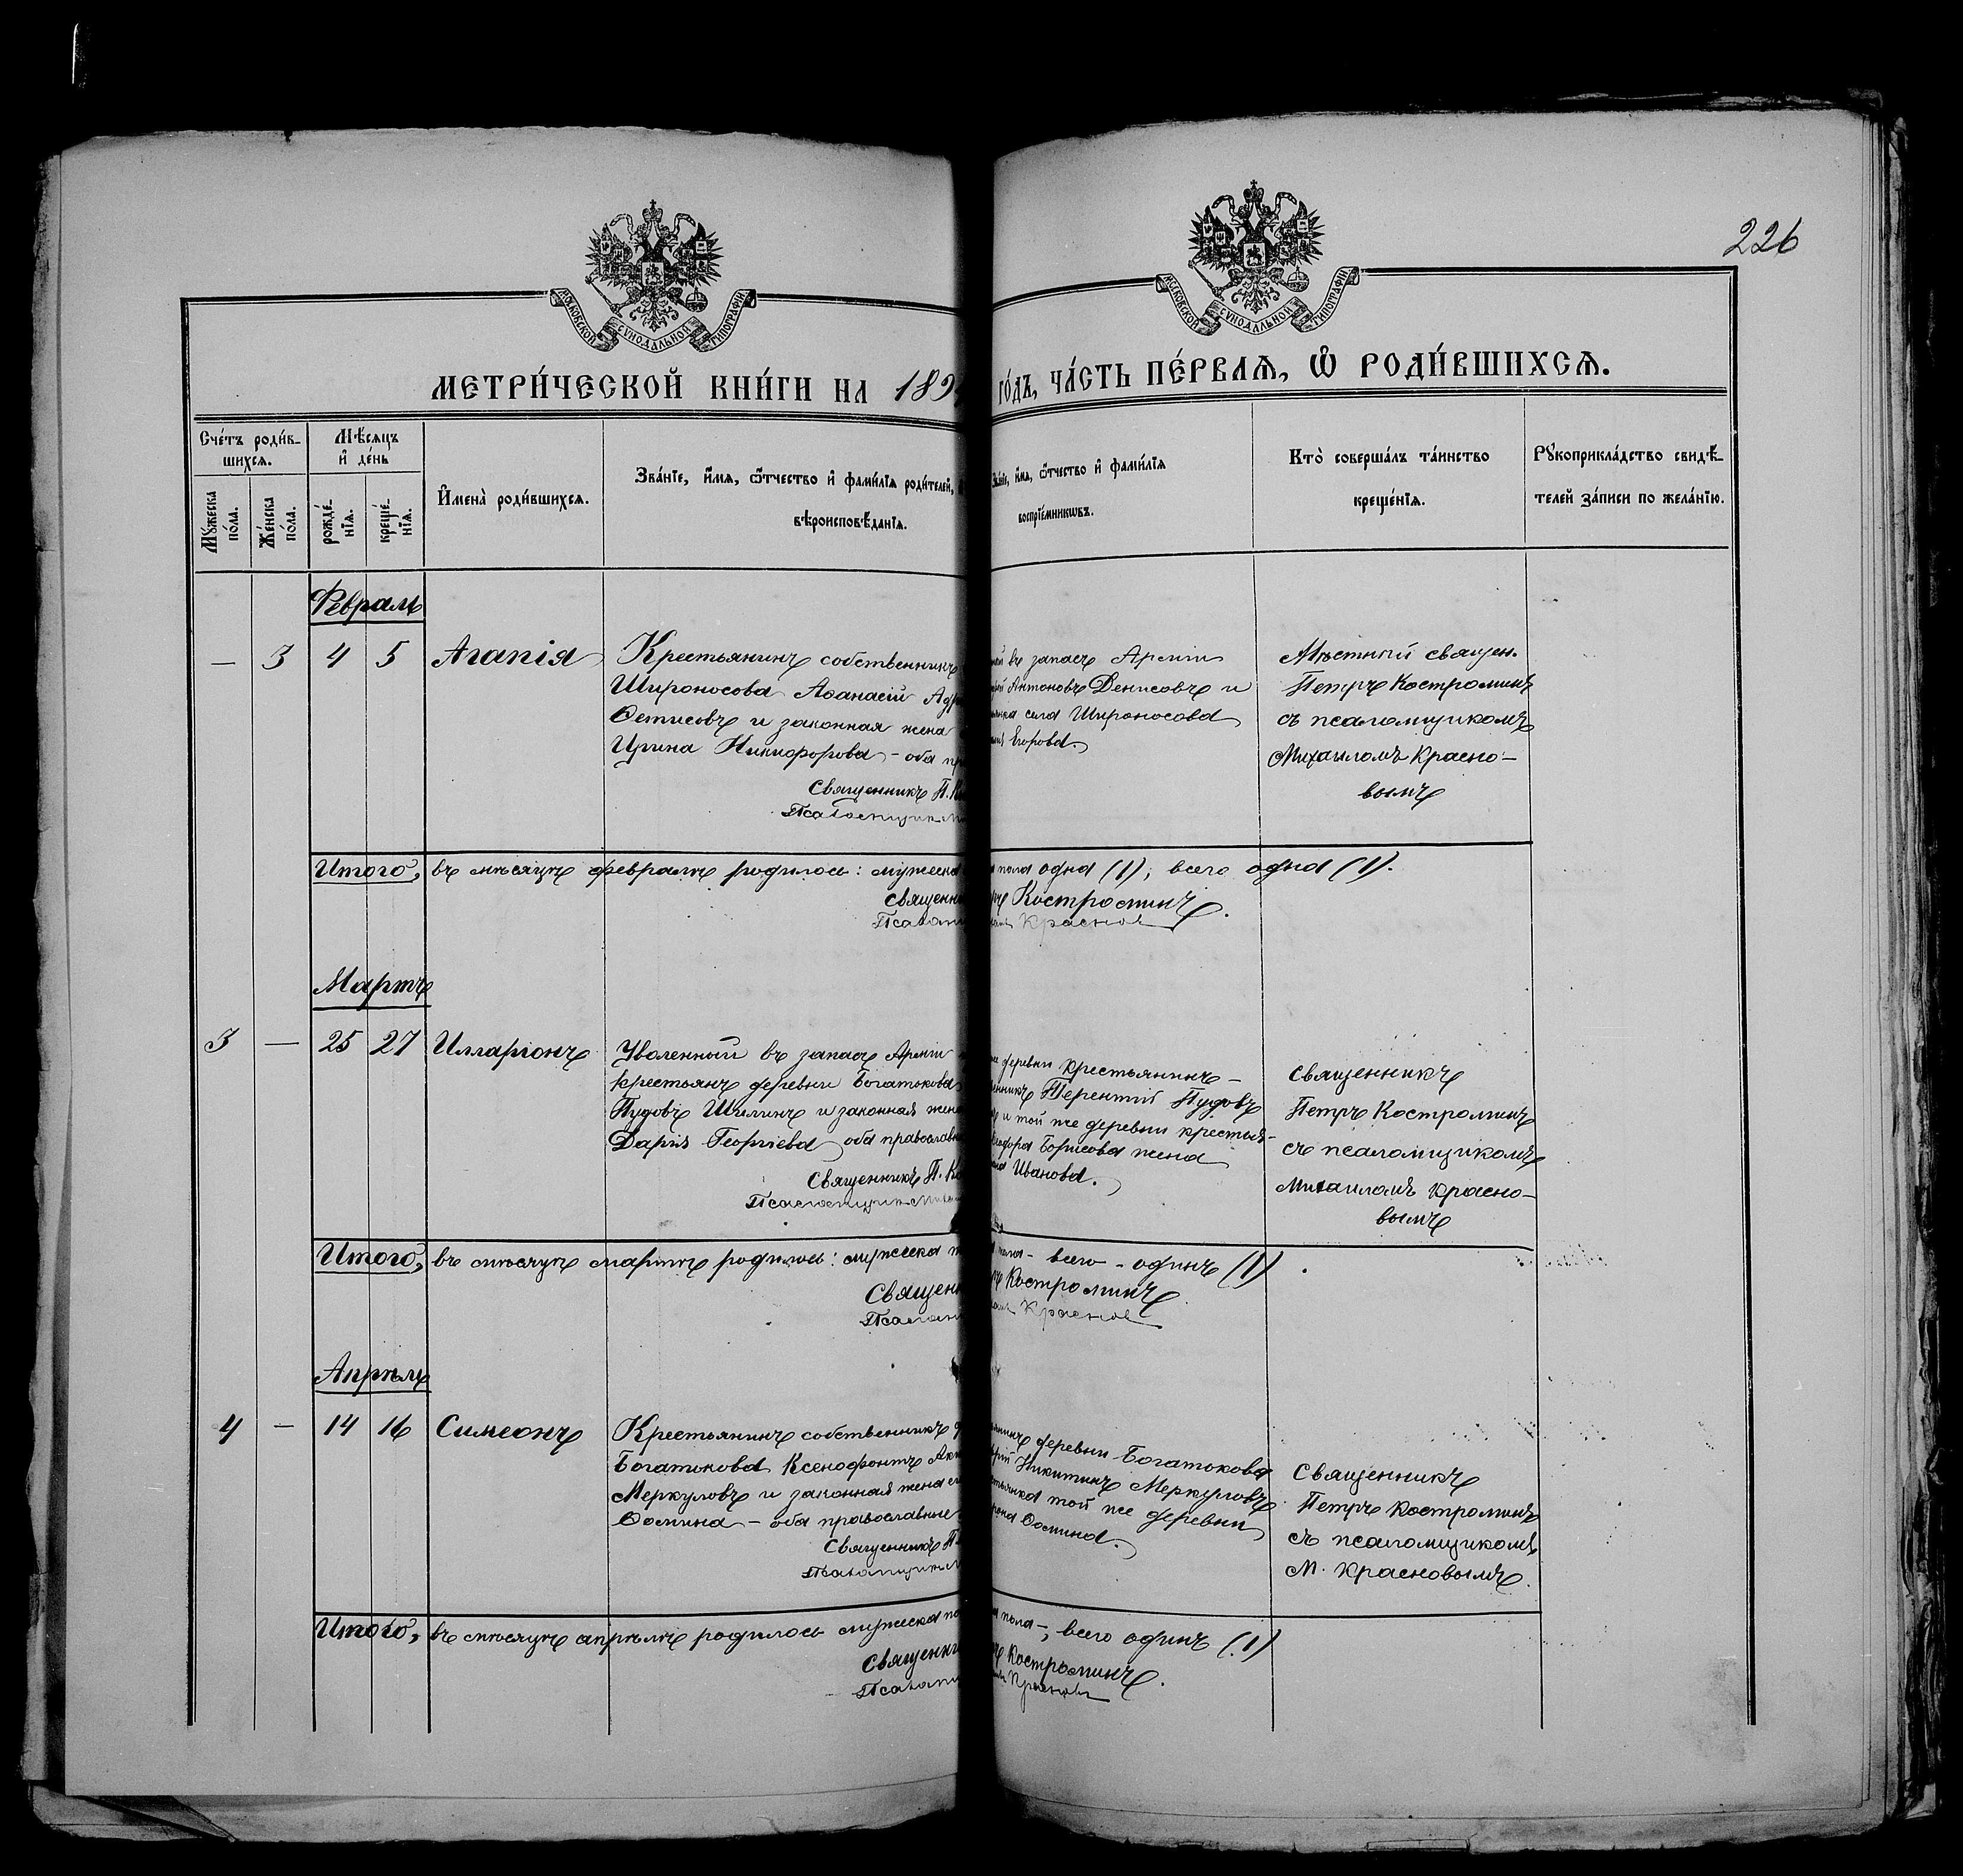 226
МОСКОВСКОЙ СѴНОДАЛЬНОЙ ТИПОГРАФІИ
МОСКОВСКОЙ СѴНОДАЛЬНОЙ ТИПОГРАФІИ
МЕТРИ́ЧЕСКОЙ КНИ́ГИ НА 189
ГО́ДЪ, ЧА́СТЬ ПЕ́РВАѦ, Ѡ҆ РОДИ́ВШИХСѦ.
Сче́тъ роди́в-
шихсѧ.
Мꙋжеска по́ла.
Же́нска по́ла.
Мѣ́сѧцъ
и҆ де́нь
рожде́-
нїѧ.
креще́-
нїѧ.
И҆мена̀ роди́вшихсѧ.
Зва́нїе, и҆́мѧ, ѻ҆́тчество и҆ фами́лїѧ роди́телей,
вѣроисповѣ́данїѧ.
Зва́нїе, и҆́мѧ, ѻ҆́тчество и҆ фами́лїѧ
воспрїе́мникѡвъ.
Кто̀ соверша́лъ та́инство
креще́нїѧ.
Рꙋкоприкла́дство свидѣ́-
телей за́писи по жела́нїю.
Февраль
— 3 4 5 Агапія
Крестьянинъ собственникъ
Широносова Аѳанасій
Ѳетисовъ и законная жена
Ирина Никифорова – оба
Священникъ П.
въ запасъ Арміи
Антоновъ Денисовъ и
села Широносова
Егорова.
Мѣстный священ.
Петръ Костроминъ
съ псаломщикомъ
Михаиломъ Красно-
вымъ
Итого, въ мѣсяцѣ февралѣ родилось: мужеска
пола одна (1); всего одна (1).
Костроминъ.
Красновъ
Мартъ
3 — 25 27 Илларіонъ
Уволенный въ запасъ Арміи
крестьянъ деревни Богатькова
Пудовъ Шилинъ и законная жена
Дарія Георгіева оба
Священникъ П.
Псаломщикъ
деревни крестьянинъ –
Терентій Пудовъ
и той же деревни крестья-
Борисова жена
Иванова.
Священникъ
Петръ Костроминъ
съ псаломщикомъ
Михаиломъ Красно-
вымъ
Итого, въ мѣсяцѣ мартѣ родилось: мужеска
пола – всего – одинъ (1).
Костроминъ
Красновъ
Апрѣль
4 — 14 16 Симеонъ
Крестьянинъ собственникъ
Богатькова Ксенофонтъ
Меркуловъ и законная жена
Ѳомина – оба православные
Священникъ
Псаломщикъ
деревни Богатькова
Никитинъ Меркуловъ
той же деревни
Ѳомина.
Священникъ
Петръ Костроминъ
съ псаломщикомъ
М. Красновымъ.
Итого, въ мѣсяцѣ апрѣлѣ родилось мужеска
пола –, всего одинъ (1)
Костроминъ.
Красновъ